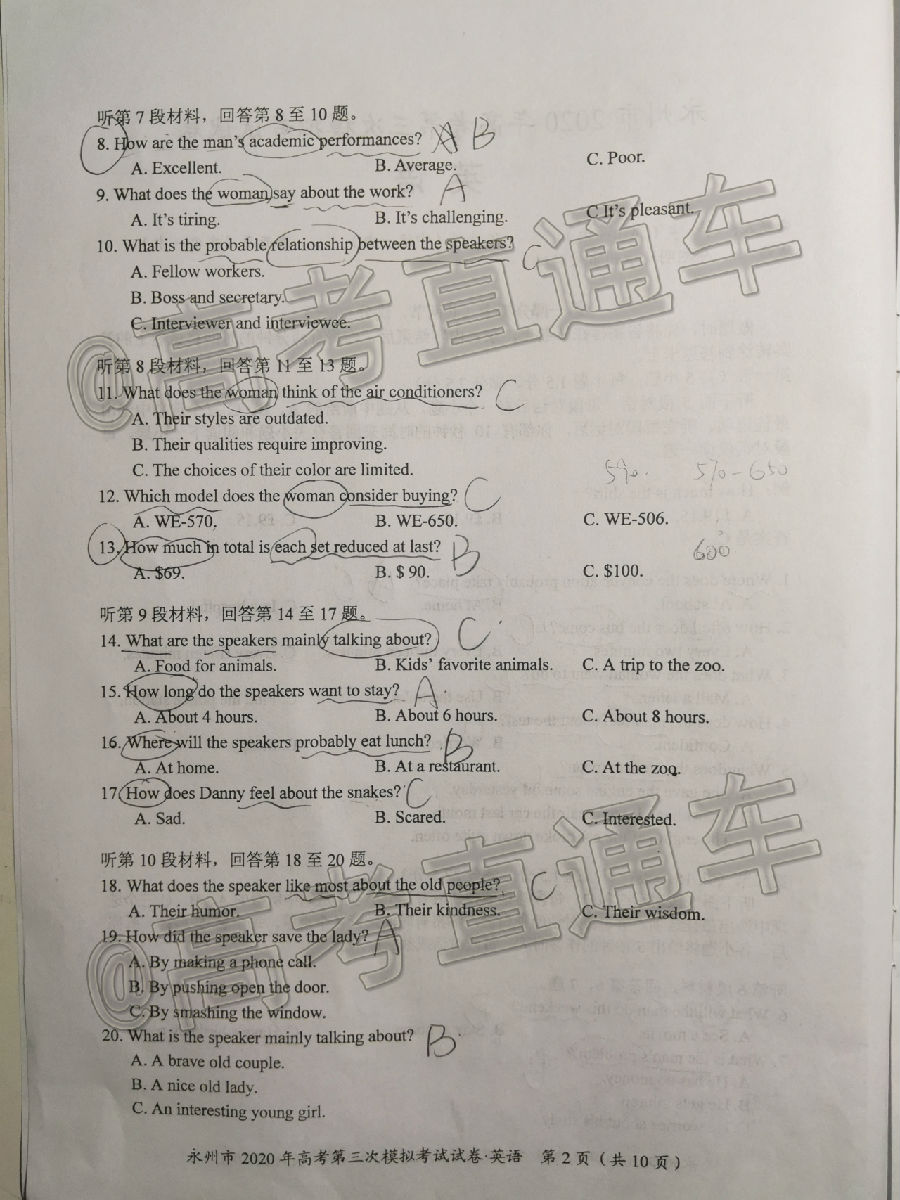 听第 7 段材料，回答第 8 至 10 题。
8. How are the man's academic performances? A B
A. Excellent. B. Average. C. Poor.
9. What does the woman say about the work? A
A. It's tiring. B. It's challenging. C It's pleasant.
10. What is the probable relationship between the speakers? C
A. Fellow workers.
B. Boss and secretary.
C. Interviewer and interviewee.
听第 8 段材料，回答第 11 至 13 题。
11. What does the woman think of the air conditioners? C
A. Their styles are outdated.
B. Their qualities require improving.
C. The choices of their color are limited.
590. 570-650
12. Which model does the woman consider buying? C
A. WE-570. B. WE-650. C. WE-506.
13. How much in total is each set reduced at last? B 600
A. $69. B. $ 90. C. $100.
听第 9 段材料，回答第 14 至 17 题。
14. What are the speakers mainly talking about? C
A. Food for animals. B. Kids' favorite animals. C. A trip to the zoo.
15. How long do the speakers want to stay? A
A. About 4 hours. B. About 6 hours. C. About 8 hours.
16. Where will the speakers probably eat lunch? B
A. At home. B. At a restaurant. C. At the zoo.
17 How does Danny feel about the snakes? C
A. Sad. B. Scared. C. Interested.
听第 10 段材料，回答第 18 至 20 题。
18. What does the speaker like most about the old people? C
A. Their humor. B. Their kindness. C. Their wisdom.
19. How did the speaker save the lady? A
A. By making a phone call.
B. By pushing open the door.
C. By smashing the window.
20. What is the speaker mainly talking about? B
A. A brave old couple.
B. A nice old lady.
C. An interesting young girl.
永州市 2020 年高考第三次模拟考试试卷·英语 第 2 页（共 10 页）
@高考直通车
@高考直通车